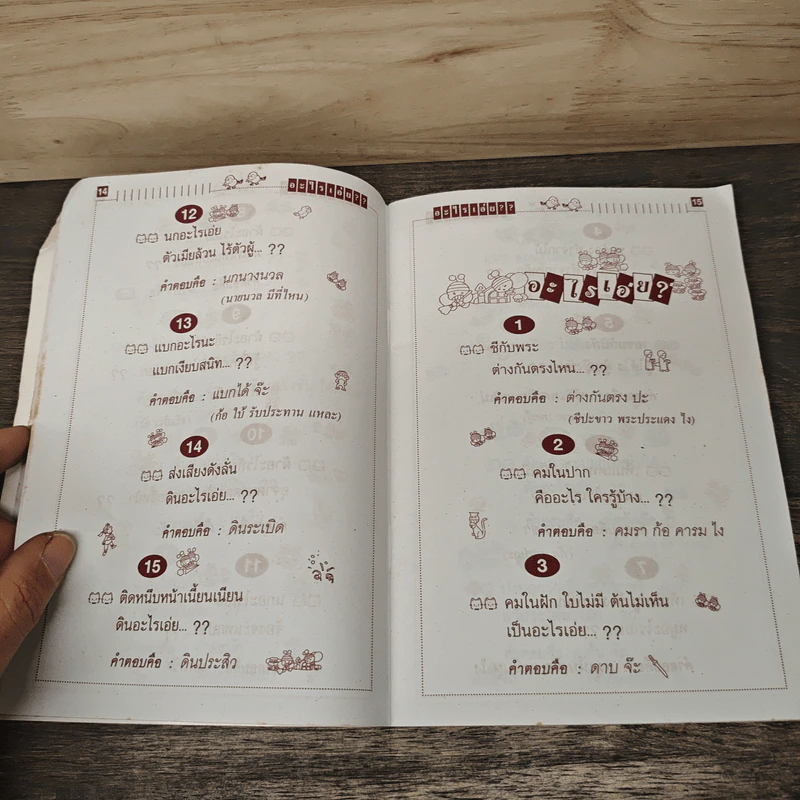 14
อะไรเอ่ย??
12
นกอะไรเอ่ย
ตัวเมียล้วน ไร้ตัวผู้... ??
คำตอบคือ : นกนางนวล
(นายนวล มีที่ไหน)
13
แบกอะไรนะ
แบกเงียบสนิท... ??
คำตอบคือ : แบกได้ จ๊ะ
(ก้อ ใบ้ รับประทาน แหละ)
14
ส่งเสียงดังลั่น
ดินอะไรเอ่ย... ??
คำตอบคือ : ดินระเบิด
15
ติดหนึบหน้าเนี้ยนเนียน
ดินอะไรเอ่ย... ??
คำตอบคือ : ดินประสิว
อะไรเอ่ย??
15
อะไรเอ่ย?
1
ชีกับพระ
ต่างกันตรงไหน... ??
คำตอบคือ : ต่างกันตรง ปะ
(ชีปะขาว พระประแดง ไง)
2
คมในปาก
คืออะไร ใครรู้บ้าง... ??
คำตอบคือ : คมรา ก้อ คารม ไง
3
คมในฝัก ใบไม่มี ต้นไม่เห็น
เป็นอะไรเอ่ย... ??
คำตอบคือ : ดาบ จ๊ะ